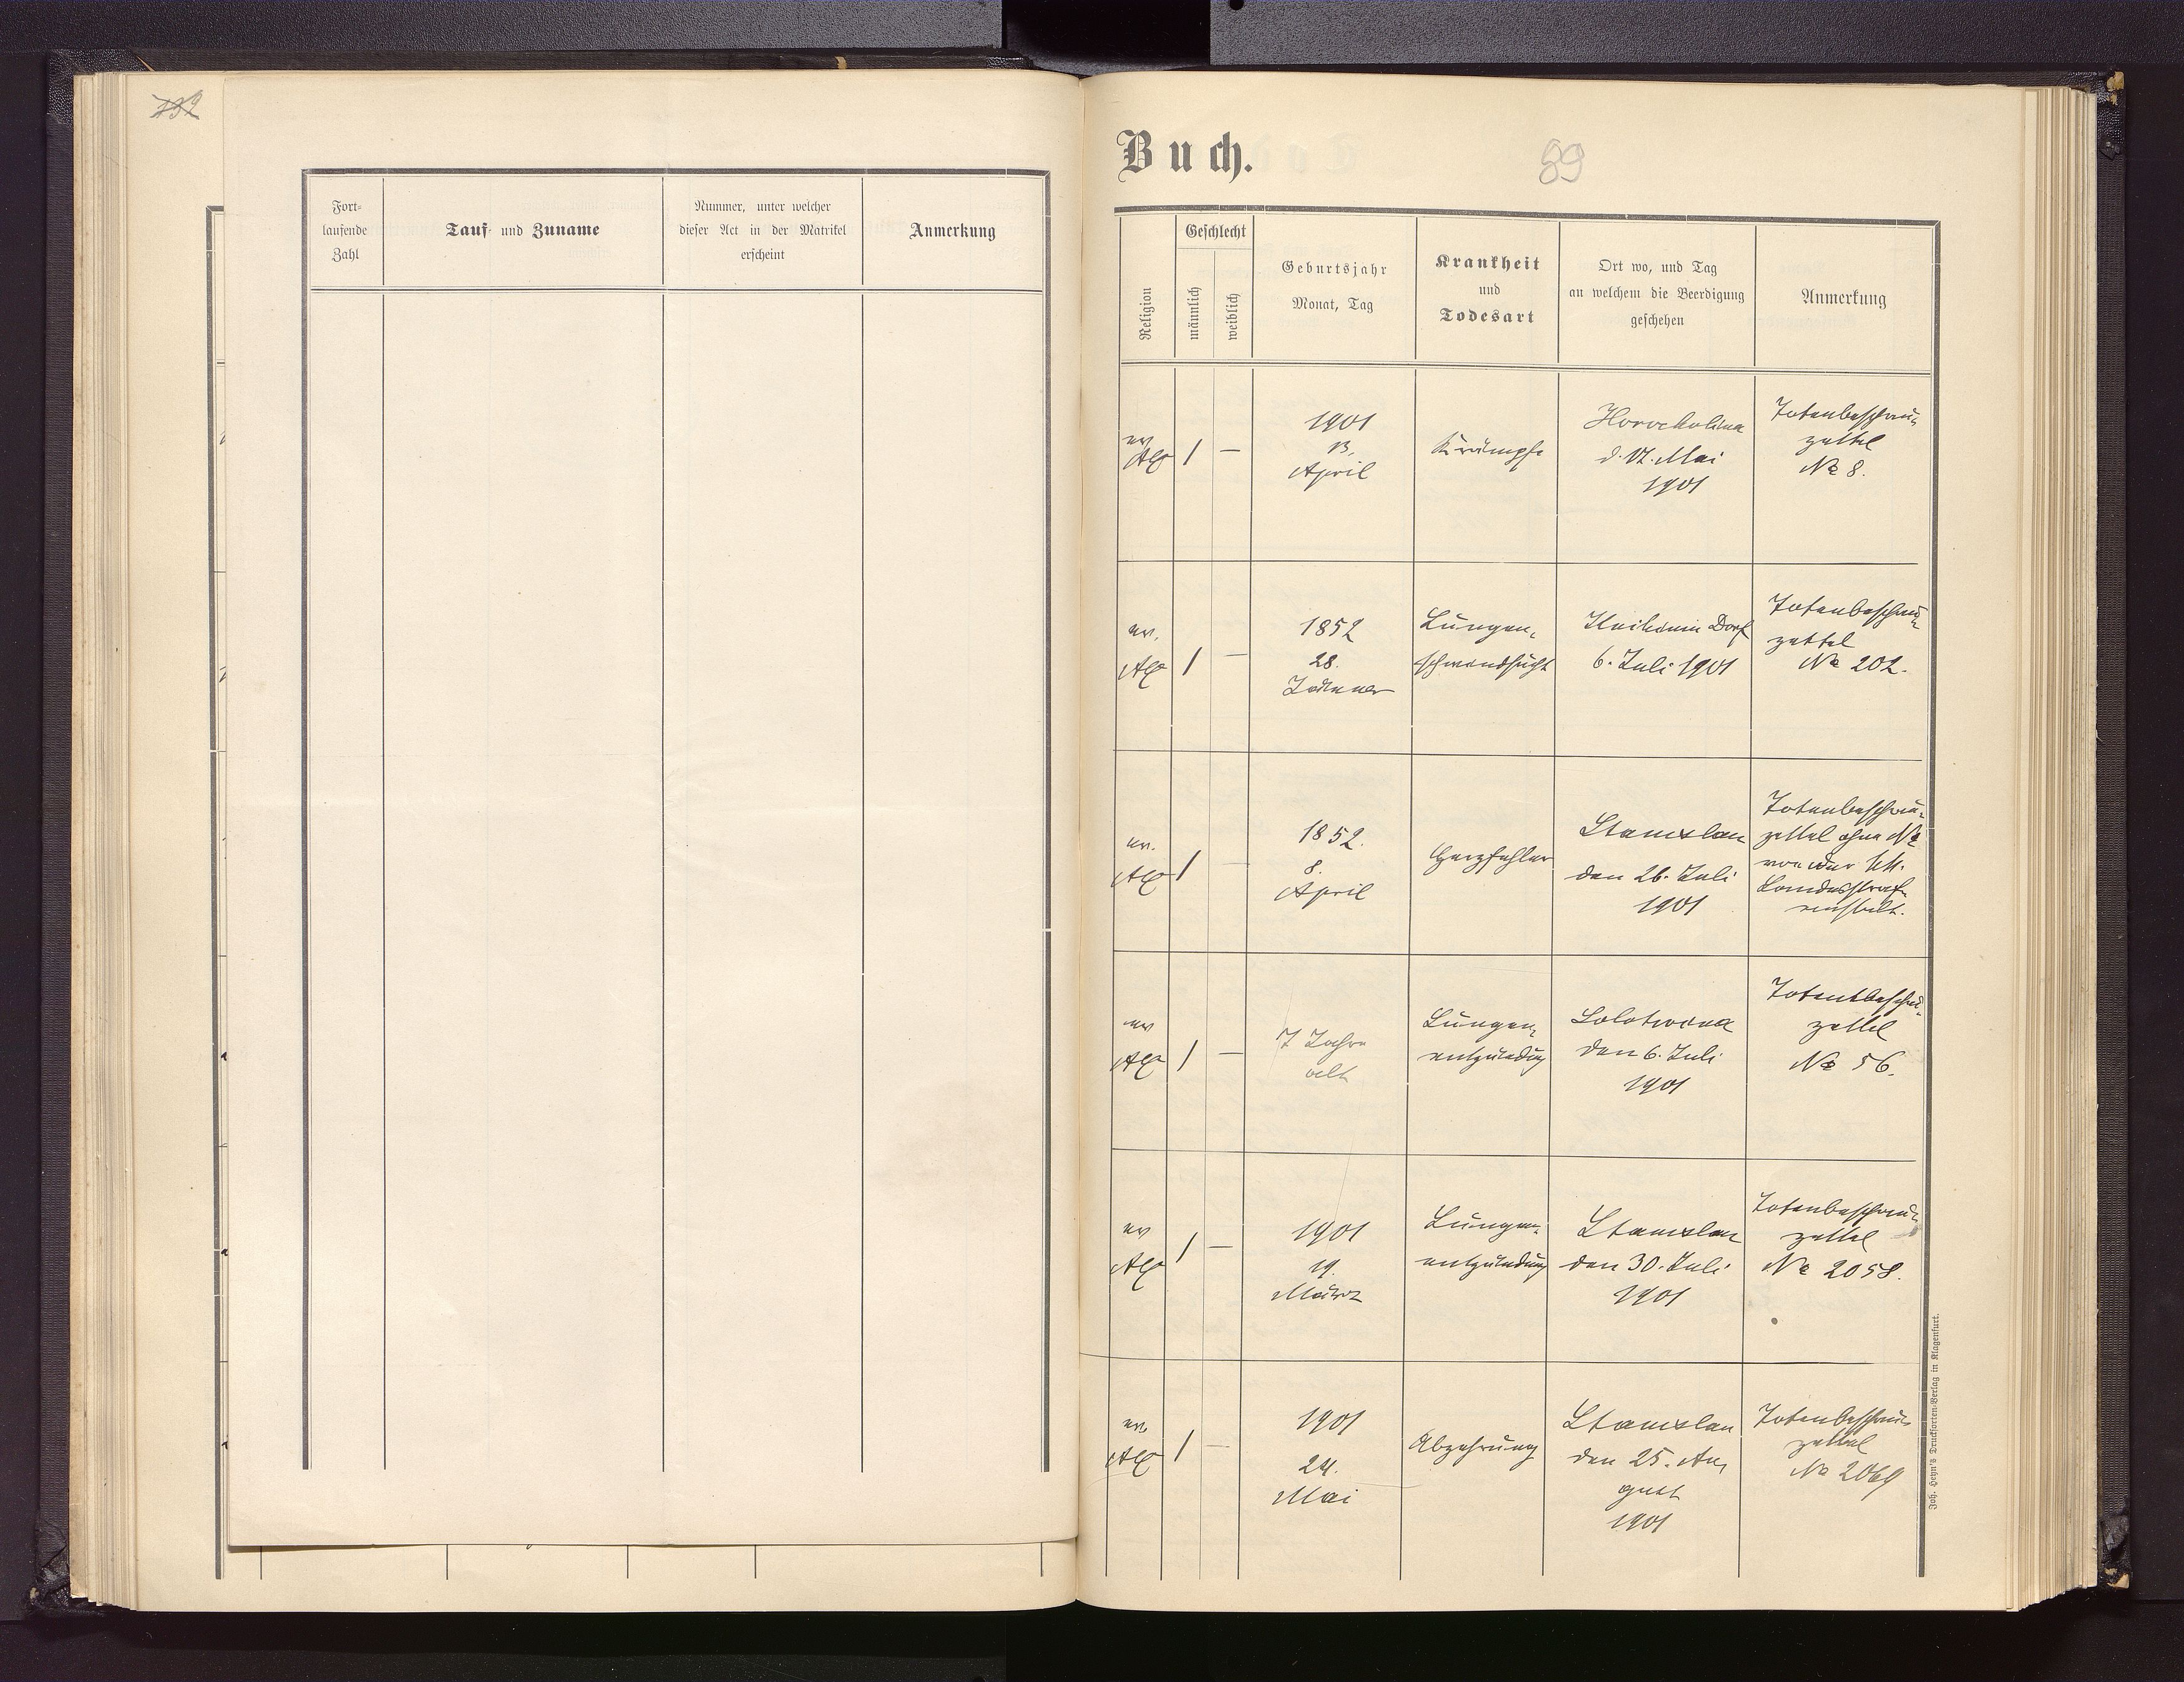 132
Fort-
laufende
Zahl
Tauf- und Zuname
Nummer, unter welcher
dieser Act in der Matrikel
erscheint
Anmerkung
Buch.
89
Religion
Geschlecht
männlich
weiblich
Geburtsjahr
Monat, Tag
Krankheit
und
Todesart
Ort wo, und Tag
an welchem die Beerdigung
geschehen
Anmerkung
ev
AC
1
—
1901
13.
April
Krämpfe
Horocholina
d. 17. Mai
1901
Totenbeschau-
zettel
№ 8.
ev.
AC
1
—
1852
28.
Jänner
Lungen-
schwindsucht
Kniheinin Dorf
6. Juli 1901
Totenbeschau-
zettel
№ 202.
ev.
AC
1
—
1852.
8.
April
Herzfehler
Stanislau
den 26. Juli
1901
Totenbeschau-
zettel ohne №
von der k.k.
Landesstraf-
anstalt.
ev
AC
1
—
7 Jahre
alt
Lungen-
entzündung
Solotwina
den 6. Juli
1901
Totenbeschau-
zettel
№ 56.
ev
AC
1
—
1901
19.
März
Lungen-
entzündung
Stanislau
den 30. Juli
1901
Totenbeschau-
zettel
№ 2058.
ev.
AC
1
—
1901
24.
Mai
Abzehrung
Stanislau
den 25. Au-
gust
1901
Totenbeschau-
zettel
№ 2069
Joh. Heyn's Drucksorten-Verlag in Klagenfurt.